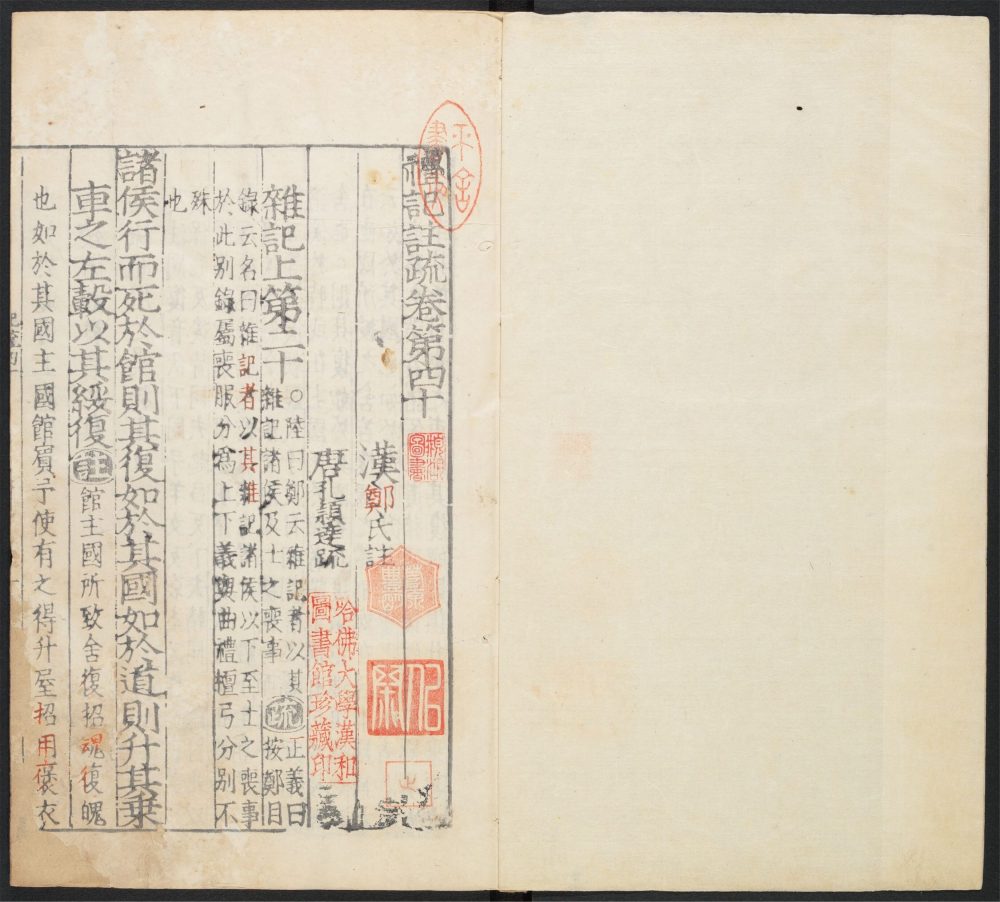 禮記註疏卷第四十
漢鄭氏註
唐孔穎達疏
哈佛大學漢和
圖書館珍藏印
雜記上第二十
○陸曰鄭云雜記者以其
雜記諸侯及士之喪事
疏
正義曰
按鄭目
錄云名曰雜記者以其雜記諸侯以下至士之喪事
於此別錄屬喪服分爲上下義與曲禮檀弓分別不
殊
也
諸侯行而死於館則其復如於其國如於道則升其乘
車之左轂以其綏復註館主國所致舍復招魂復魄
也如於其國主國館賓予使有之得升屋招用褒衣